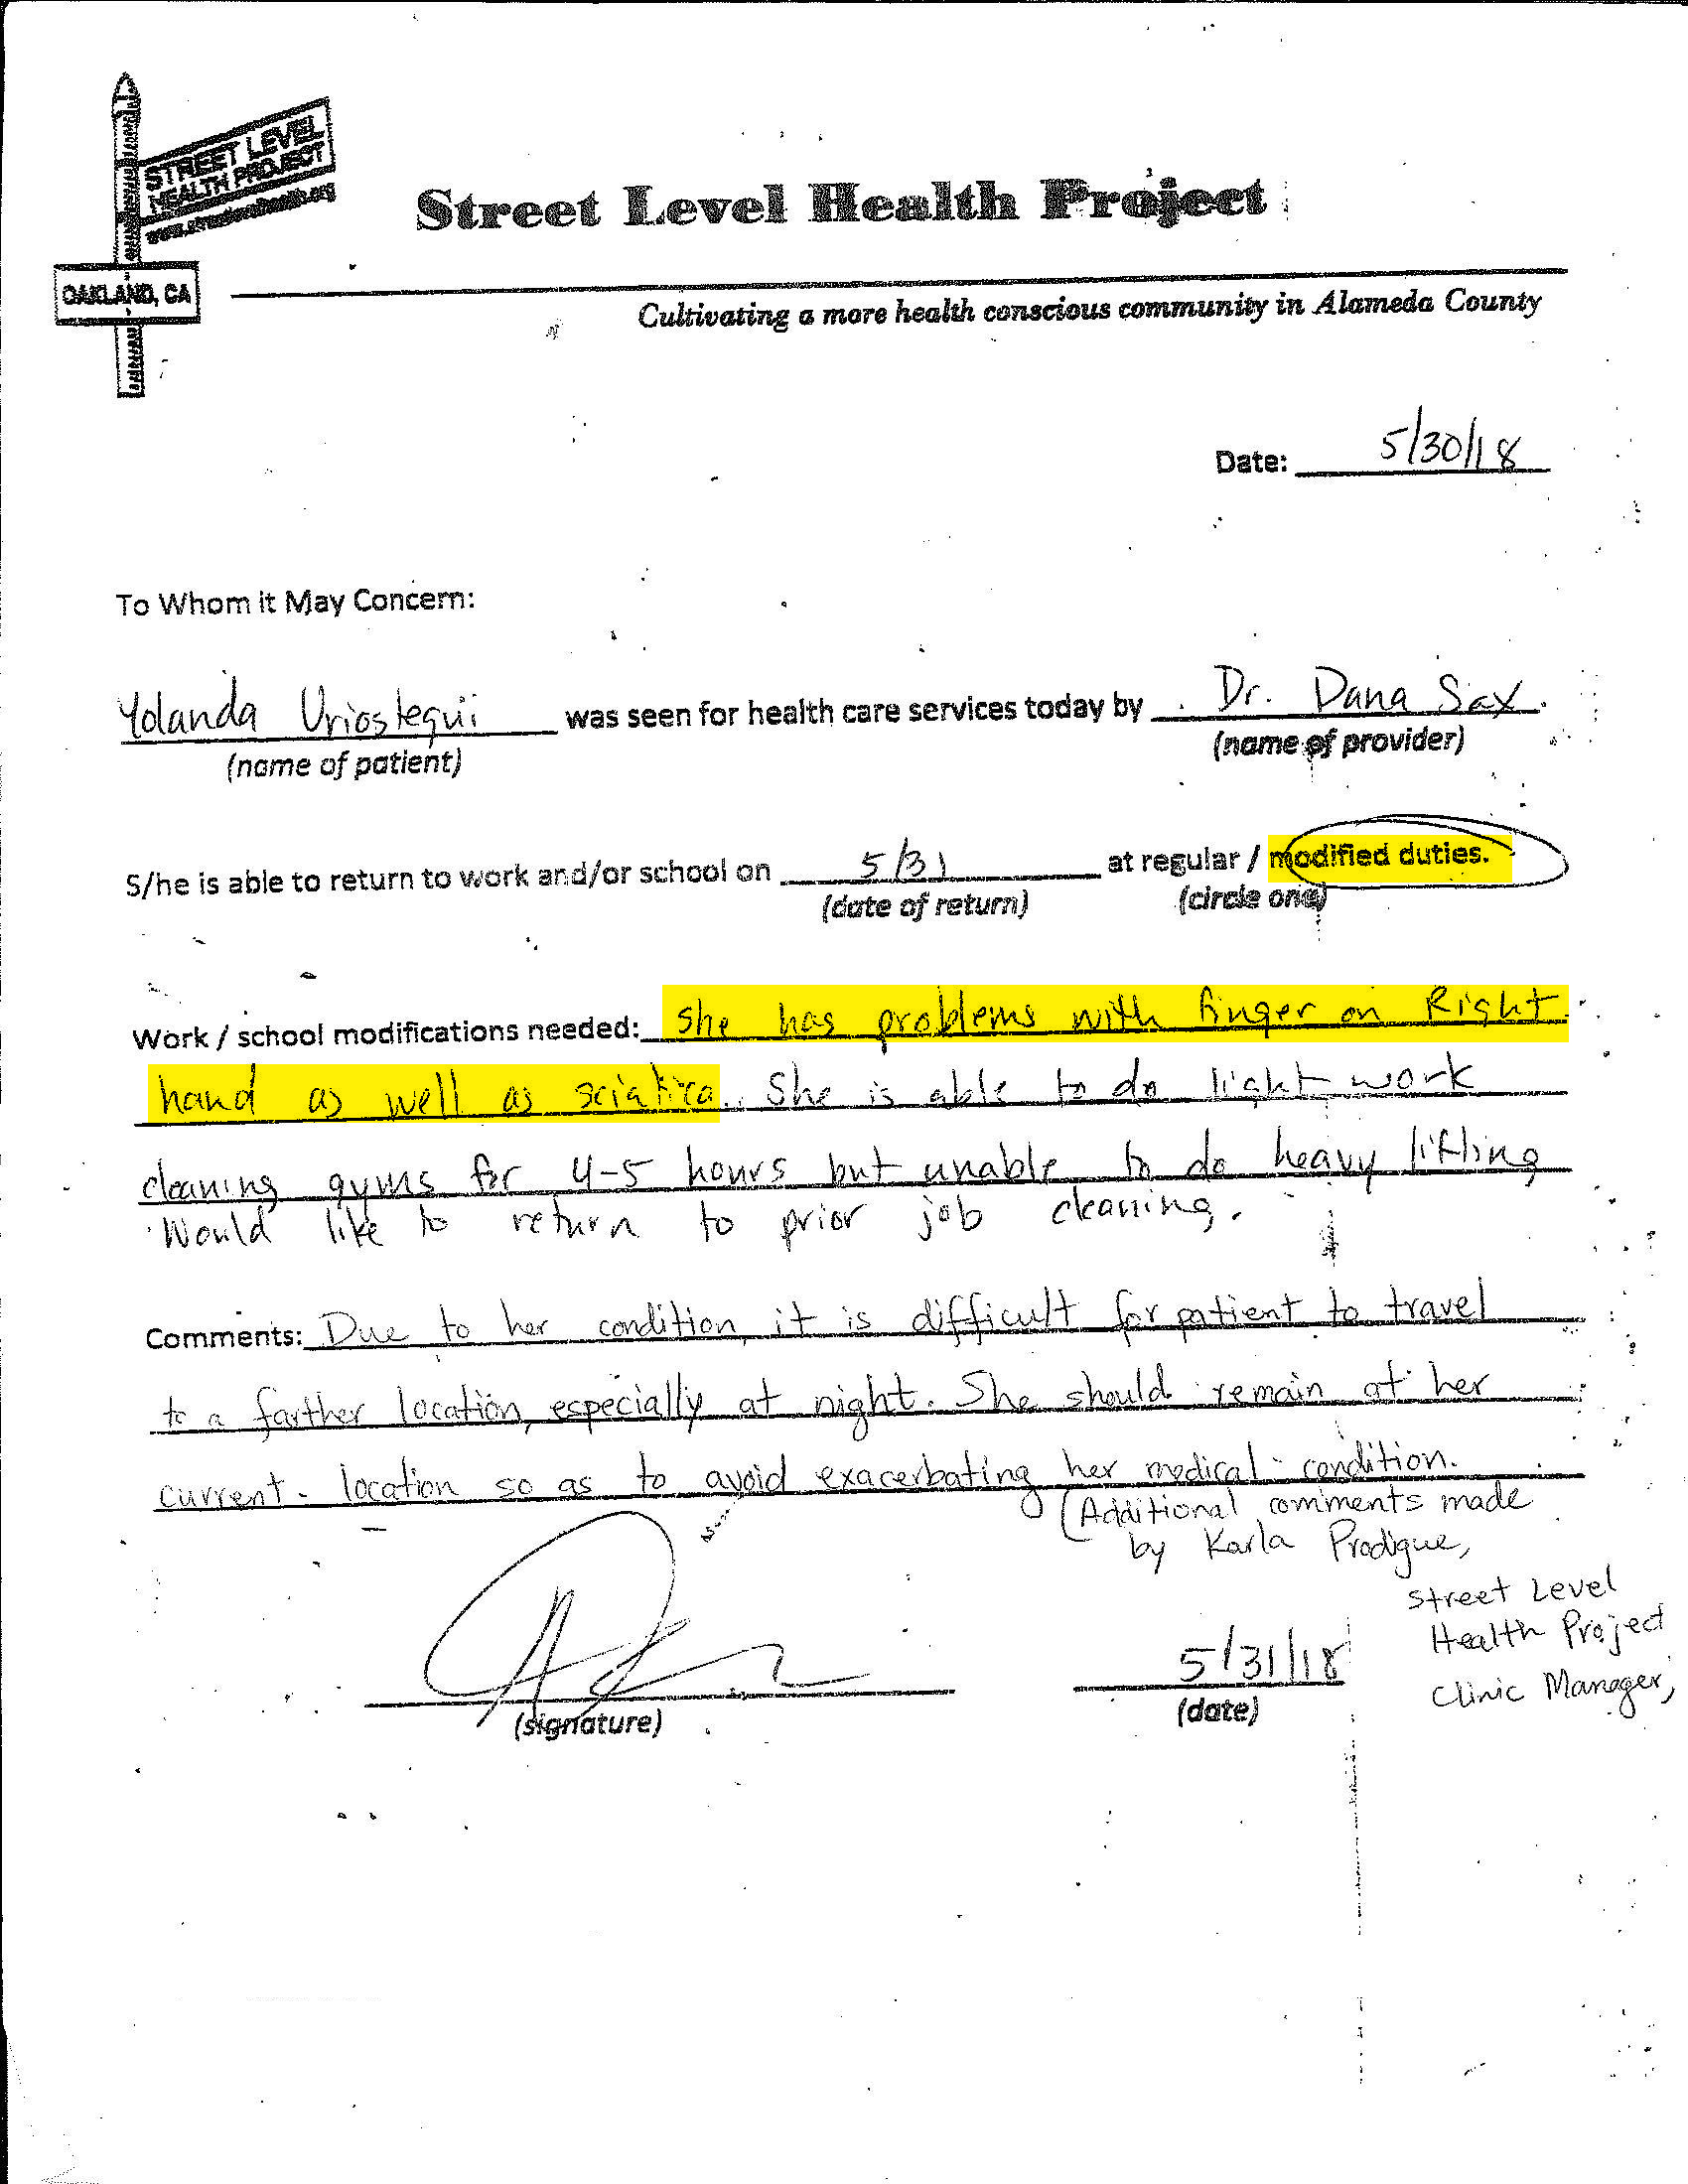 STREET LEVEL
HEALTH PROJECT
OAKLAND, CA
Street Level Health Project
Cultivating a more health conscious community in Alameda County
Date: 5/30/18
To Whom it May Concern:
Yolanda Uriostegui was seen for health care services today by Dr. Dana Sax.
(name of patient) (name of provider)
S/he is able to return to work and/or school on 5/31 at regular / modified duties.
(date of return) (circle one)
Work / school modifications needed: She has problems with finger on Right
hand as well as sciatica. She is able to do light work
cleaning gyms for 4-5 hours but unable to do heavy lifting
Would like to return to prior job cleaning.
Comments: Due to her condition, it is difficult for patient to travel
to a farther location, especially at night. She should remain at her
current location so as to avoid exacerbating her medical condition.
(Additional comments made
by Karla Prodigue,
Street Level
Health Project
Clinic Manager,
5/31/18
(signature) (date)